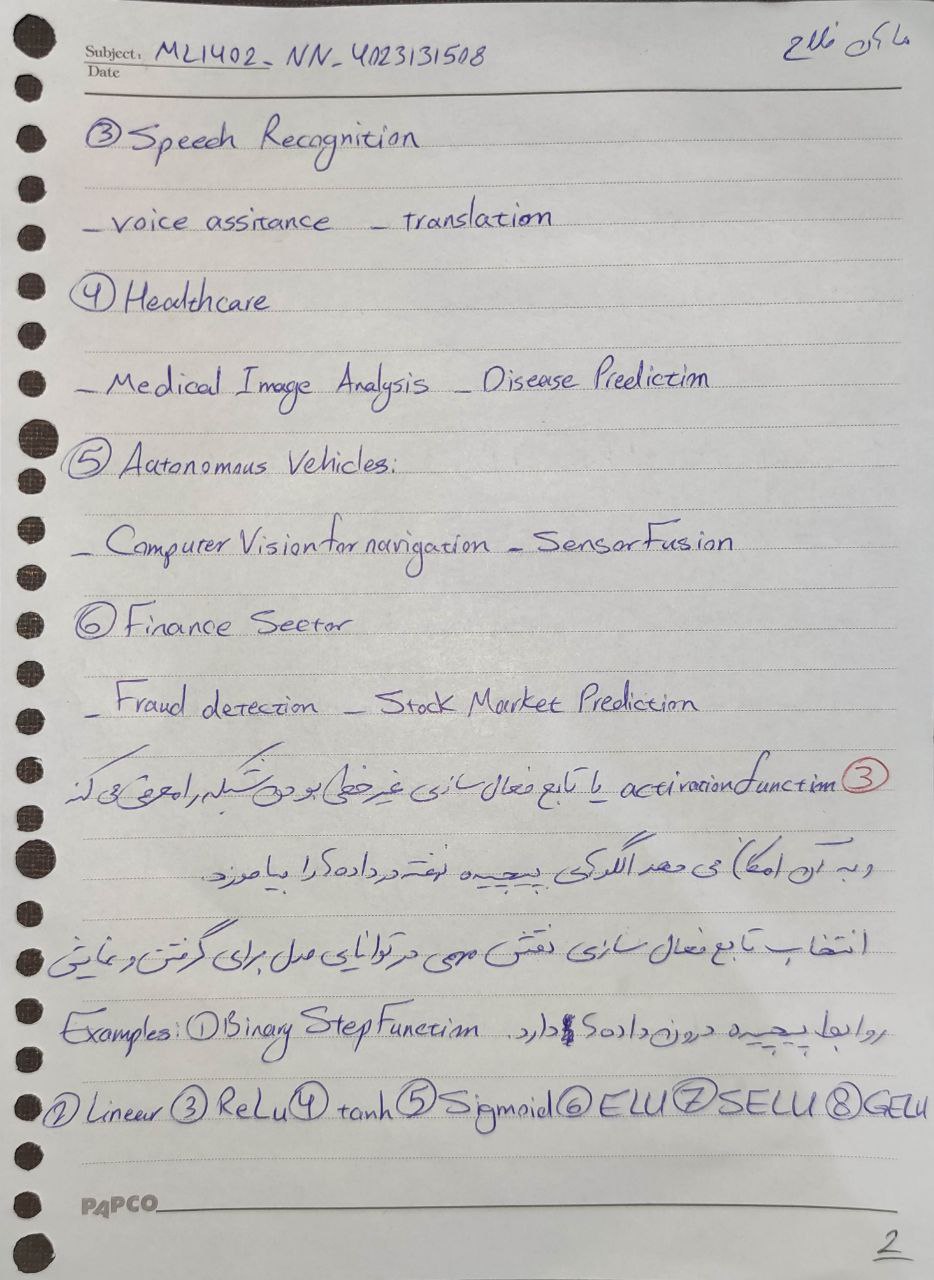 Subject: ML1402_ NN_ 4023131508
Date
③ Speech Recognition
_ voice assitance _ translation
④ Healthcare
_ Medical Image Analysis _ Disease Prediction
⑤ Autonomous Vehicles:
_ Computer Vision for navigation _ Sensor Fusion
⑥ Finance Sector
_ Fraud detection _ Stock Market Prediction
③ activation function یا تابع فعال سازی غیر خطی بودن شبکه را معرفی می کند
و به آن امکان می دهد الگوهای پیچیده نهفته در داده ها را بیاموزد.
انتخاب تابع فعال سازی نقش مهمی در توانایی مدل برای گرفتن و نمایش
روابط پیچیده درون داده ها دارد. Examples: ① Binary Step Function
② Linear ③ ReLu ④ tanh ⑤ Sigmoid ⑥ ELU ⑦ SELU ⑧ GELU
PAPCO
2